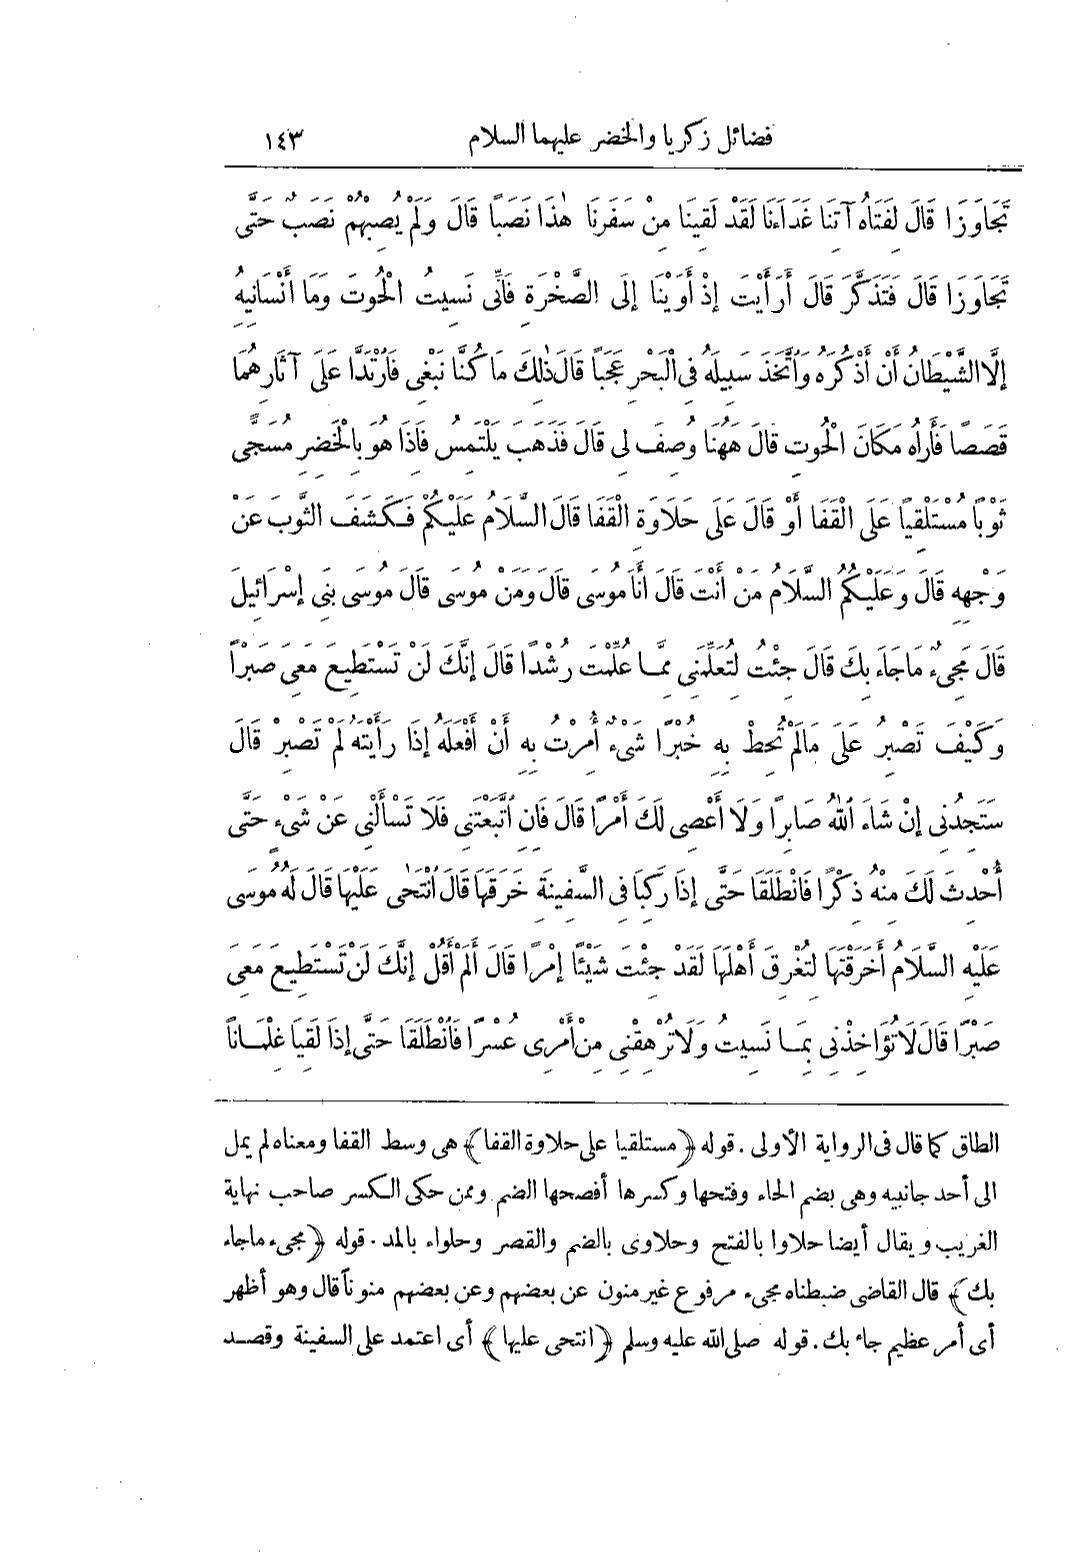 فضائل زكريا والخضر عليهما السلام ١٤٣
تَجَاوَزَا قَالَ لِفَتَاهُ آتِنَا غَدَاءَنَا لَقَدْ لَقِينَا مِنْ سَفَرِنَا هٰذَا نَصَبًا قَالَ وَلَمْ يُصِبْهُمْ نَصَبٌ حَتَّى
تَجَاوَزَا قَالَ فَتَذَكَّرَ قَالَ أَرَأَيْتَ إِذْ أَوَيْنَا إِلَى الصَّخْرَةِ فَانِّى نَسِيتُ الْحُوتَ وَمَا أَنْسَانِيهُ
إِلَّا الشَّيْطَانُ أَنْ أَذْكُرَهُ وَٱتَّخَذَ سَبِيلَهُ فِى الْبَحْرِ عَجَبًا قَالَ ذٰلِكَ مَا كُنَّا نَبْغِى فَٱرْتَدَّا عَلَى آثَارِهِمَا
قَصَصًا فَأَرَاهُ مَكَانَ الْحُوتِ قَالَ هَهُنَا وُصِفَ لِى قَالَ فَذَهَبَ يَلْتَمِسُ فَاذَا هُوَ بِالْخَضِرِ مُسَجًّى
ثَوْبًا مُسْتَلْقِيًا عَلَى الْقَفَا أَوْ قَالَ عَلَى حَلَاوَةِ الْقَفَا قَالَ السَّلَامُ عَلَيْكُمْ فَكَشَفَ الثَّوبَ عَنْ
وَجْهِهِ قَالَ وَعَلَيْكُمُ السَّلَامُ مَنْ أَنْتَ قَالَ أَنَا مُوسَى قَالَ وَمَنْ مُوسَى قَالَ مُوسَى بَنِى إِسْرَائِيلَ
قَالَ مَجِىءٌ مَا جَاءَ بِكَ قَالَ جِئْتُ لِتُعَلِّمَنِى مِمَّا عُلِّمْتَ رُشْدًا قَالَ إِنَّكَ لَنْ تَسْتَطِيعَ مَعِىَ صَبْرًا
وَكَيْفَ تَصْبِرُ عَلَى مَالَمْ تُحِطْ بِهِ خُبْرًا شَىْءٌ أُمِرْتُ بِهِ أَنْ أَفْعَلَهُ إِذَا رَأَيْتَهُ لَمْ تَصْبِرْ قَالَ
سَتَجِدُنِى إِنْ شَاءَ ٱللهُ صَابِرًا وَلَا أَعْصِى لَكَ أَمْرًا قَالَ فَانِ ٱتَّبَعْتَنِى فَلَا تَسْأَلْنِى عَنْ شَىْءٍ حَتَّى
أُحْدِثَ لَكَ مِنْهُ ذِكْرًا فَانْطَلَقَا حَتَّى إِذَا رَكِبَا فِى السَّفِينَةِ خَرَقَهَا قَالَ ٱنْتَحَى عَلَيْهَا قَالَ لَهُ مُوسَى
عَلَيْهِ السَّلَامُ أَخَرَقْتَهَا لِتُغْرِقَ أَهْلَهَا لَقَدْ جِئْتَ شَيْئًا إِمْرًا قَالَ أَلَمْ أَقُلْ إِنَّكَ لَنْ تَسْتَطِيعَ مَعِىَ
صَبْرًا قَالَ لَا تُؤَاخِذْنِى بِمَا نَسِيتُ وَلَا تُرْهِقْنِى مِنْ أَمْرِى عُسْرًا فَٱنْطَلَقَا حَتَّى إِذَا لَقِيَا غِلْمَانًا
الطاق كما قال فى الرواية الأولى . قوله ﴿مستلقيا على حلاوة القفا﴾ هى وسط القفا ومعناه لم يمل
الى أحد جانبيه وهى بضم الحاء وفتحها وكسرها أفصحها الضم وممن حكى الكسر صاحب نهاية
الغريب ويقال أيضا حلاوا بالفتح وحلاوى بالضم والقصر وحلواء بالمد . قوله ﴿مجىء ماجاء
بك﴾ قال القاضى ضبطناه مجىء مرفوع غير منون عن بعضهم وعن بعضهم منوناً قال وهو أظهر
أى أمر عظيم جاء بك . قوله صلى الله عليه وسلم ﴿انتحى عليها﴾ أى اعتمد على السفينة وقصد